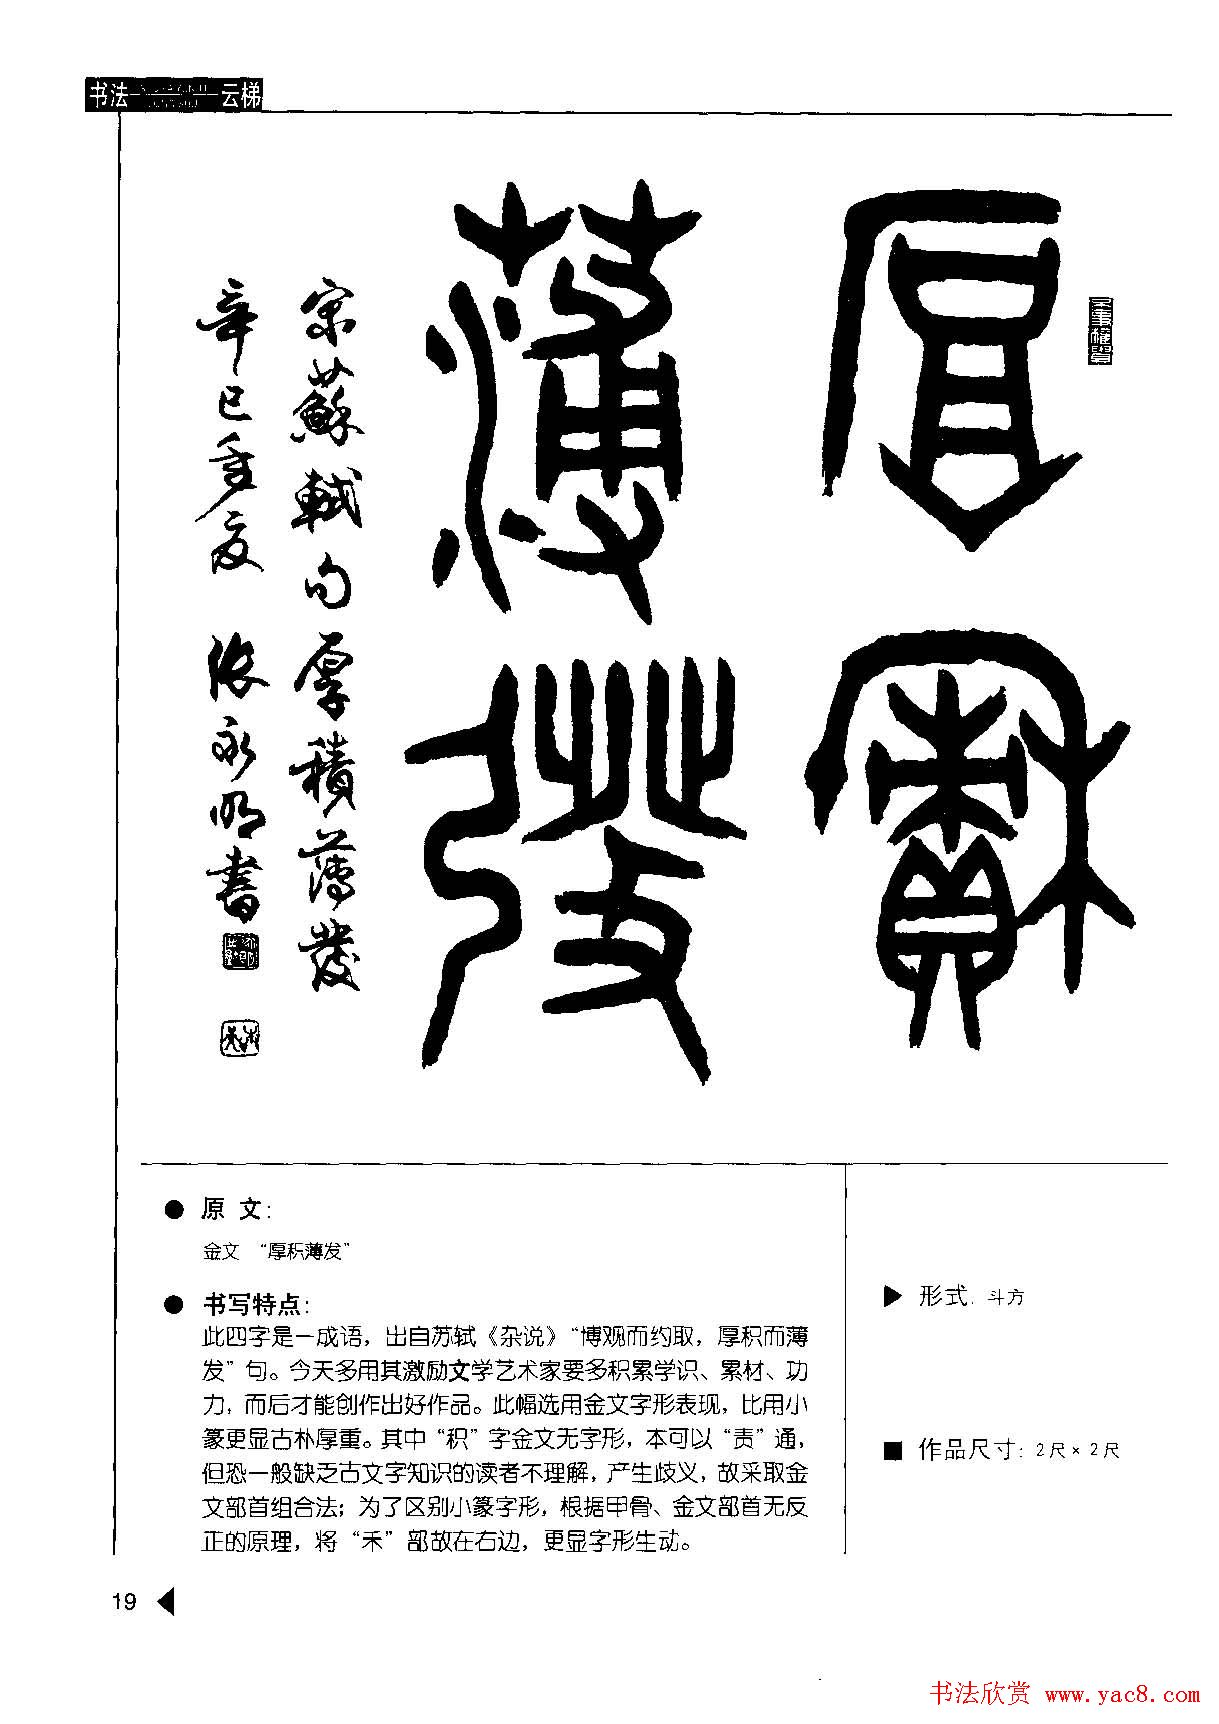 书法 云梯
厚积
薄发
宋蘇軾句厚積薄發
辛巳季夏 张永明書
● 原 文：
金文 “厚积薄发”
● 书写特点：
此四字是一成语，出自苏轼《杂说》“博观而约取，厚积而薄
发”句。今天多用其激励文学艺术家要多积累学识、累材、功
力，而后才能创作出好作品。此幅选用金文字形表现，比用小
篆更显古朴厚重。其中“积”字金文无字形，本可以“责”通，
但恐一般缺乏古文字知识的读者不理解，产生歧义，故采取金
文部首组合法；为了区别小篆字形，根据甲骨、金文部首无反
正的原理，将“禾”部故在右边，更显字形生动。
▶ 形式：斗方
■ 作品尺寸：2尺×2尺
19 ◀
书法欣赏 www.yac8.com